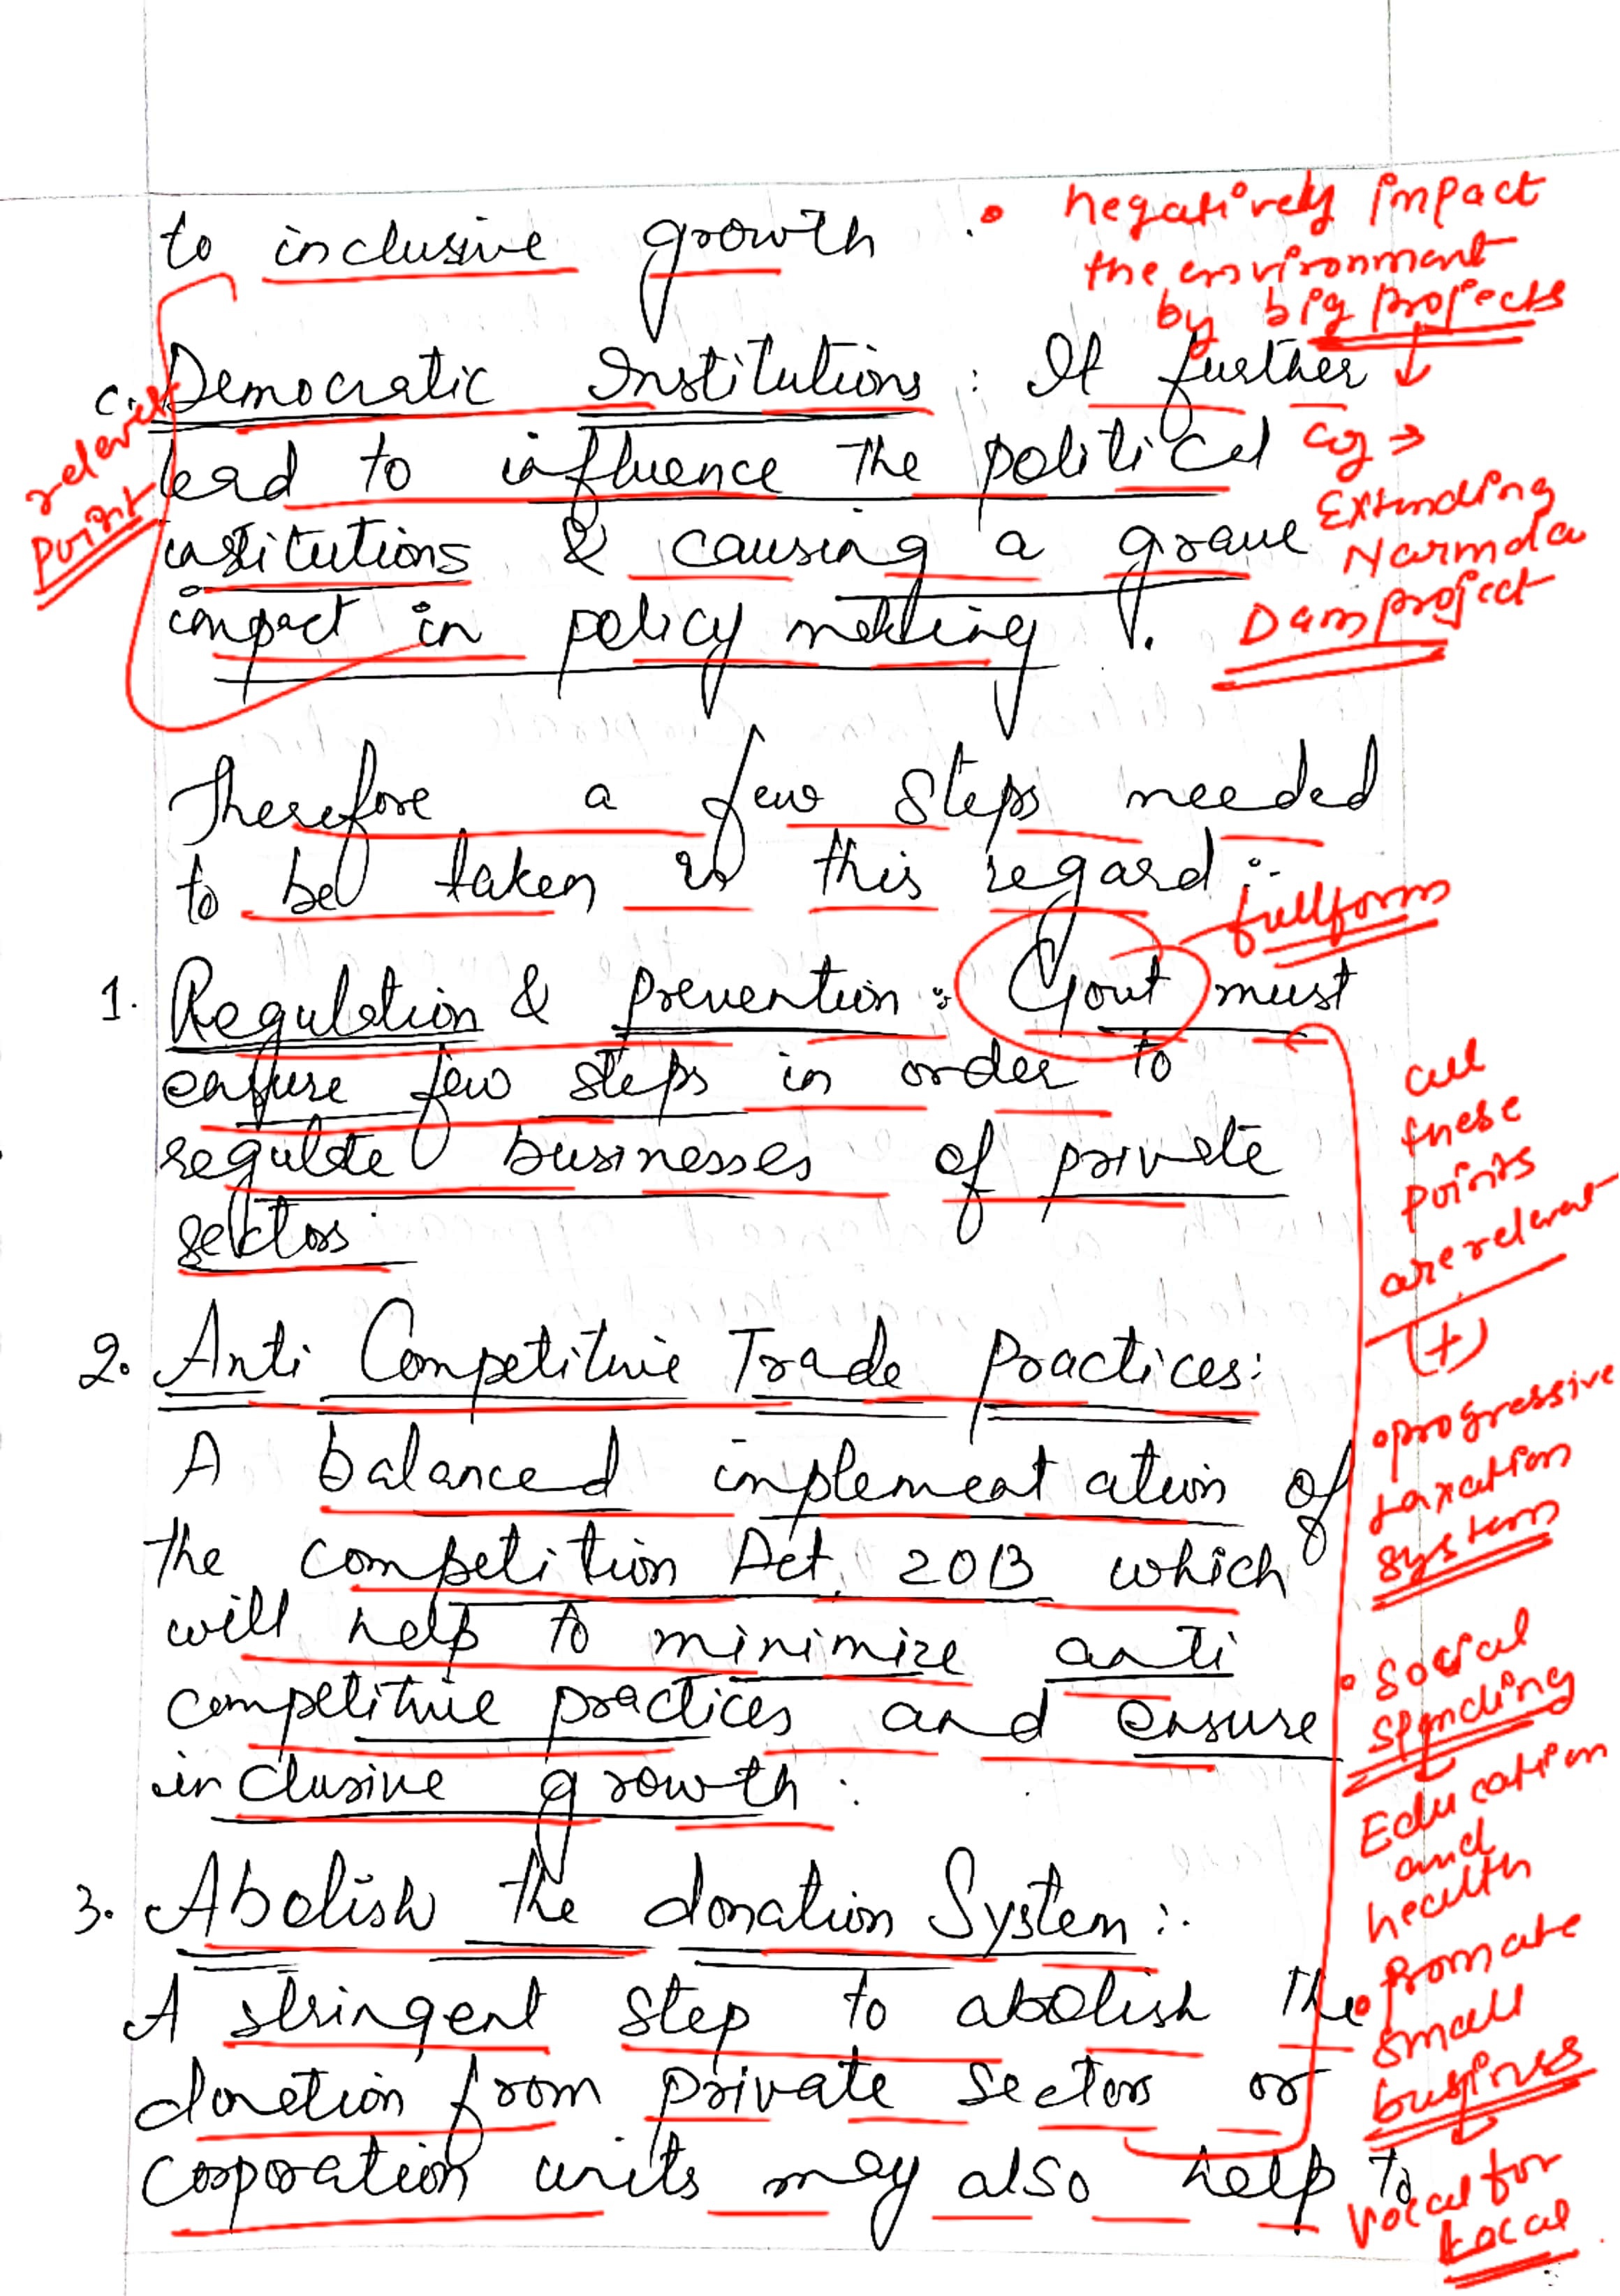 to inclusive growth
• negatively impact
the environment
by big projects
eg →
Extending
Narmda
Dam project
relevant
point
c. Democratic Institutions : It further
lead to influence the political
institutions & causing a grave
impact in policy making .
Therefore a few steps needed
to be taken in this regard :-
fullform
1. Regulation & prevention : Govt must
ensure few steps in order to
regulate businesses of private
sectors
all
these
points
are relevant
(+)
2. Anti Competitive Trade Practices:
A balanced implementation of
the competition Act, 2013 which
will help to minimize anti
competitive practices and ensure
inclusive growth .
• progressive
taxation
system
• Social
spending
Education
and
health
• promate
small
business
Vocal for
Local
3. Abolish the donation System :-
A stringent step to abolish the
donation from private sectors or
corporation units may also help to